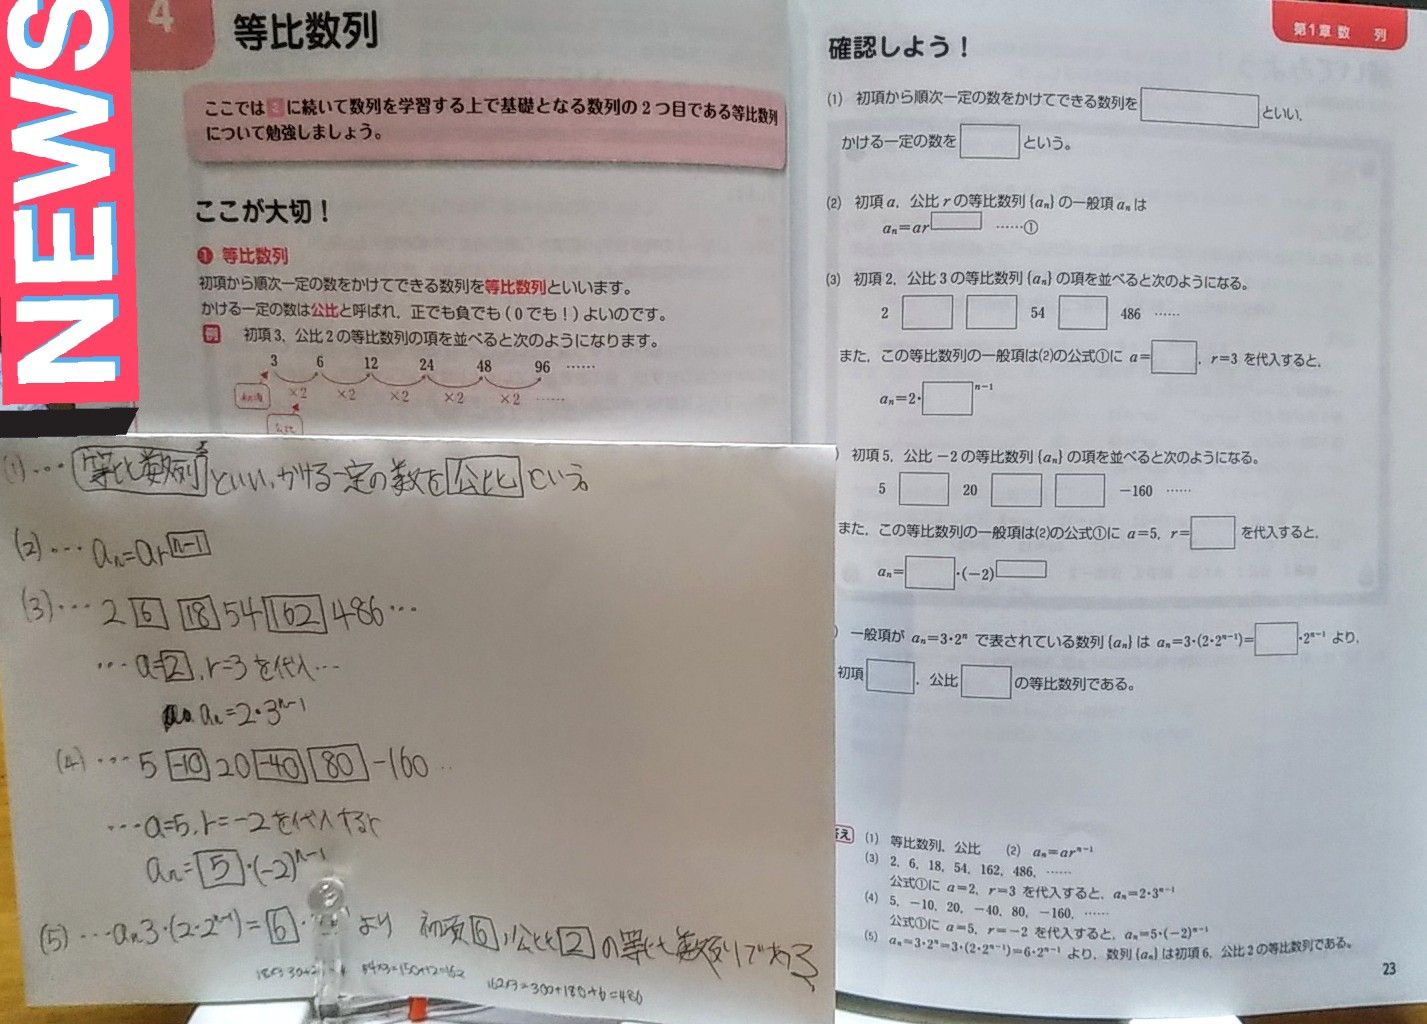 NEWS
4
等比数列
ここでは 2 に続いて数列を学習する上で基礎となる数列の2つ目である等比数列
について勉強しましょう。
ここが大切！
❶ 等比数列
初項から順次一定の数をかけてできる数列を等比数列といいます。
かける一定の数は公比と呼ばれ，正でも負でも(0でも！)よいのです。
例 初項3，公比2の等比数列の項を並べると次のようになります。
3 6 12 24 48 96 ……
初項 ×2 ×2 ×2 ×2 ×2 ……
公比
第1章 数 列
確認しよう！
(1) 初項から順次一定の数をかけてできる数列を といい，
かける一定の数を という。
(2) 初項a，公比rの等比数列{aₙ}の一般項aₙは
aₙ=ar ……①
(3) 初項2，公比3の等比数列{aₙ}の項を並べると次のようになる。
2 54 486 ……
また，この等比数列の一般項は(2)の公式①に a= ，r=3 を代入すると，
aₙ=2・ ⁿ⁻¹
) 初項5，公比−2の等比数列{aₙ}の項を並べると次のようになる。
5 20 −160 ……
また，この等比数列の一般項は(2)の公式①に a=5，r= を代入すると，
aₙ= ・(−2)
) 一般項が aₙ=3・2ⁿ で表されている数列{aₙ}は aₙ=3・(2・2ⁿ⁻¹)= ・2ⁿ⁻¹ より，
初項 ，公比 の等比数列である。
答え (1) 等比数列，公比 (2) aₙ=arⁿ⁻¹
(3) 2，6，18，54，162，486，……
公式①に a=2，r=3 を代入すると，aₙ=2・3ⁿ⁻¹
(4) 5，−10，20，−40，80，−160，……
公式①に a=5，r=−2 を代入すると，aₙ=5・(−2)ⁿ⁻¹
(5) aₙ=3・2ⁿ=3・(2・2ⁿ⁻¹)=6・2ⁿ⁻¹ より，数列{aₙ}は初項6，公比2の等比数列である。
23
(1)… 等比数列 といい、かける一定の数を 公比 という。
(2)… aₙ=arⁿ⁻¹
(3)… 2 6 18 54 162 486…
…a=2，r=3を代入…
aₙ=2・3ⁿ⁻¹
(4)… 5 -10 20 -40 80 -160…
…a=5，r=-2を代入すると
aₙ=5・(-2)ⁿ⁻¹
(5)…aₙ3・(2・2ⁿ⁻¹)=6・ より 初項6，公比2の等比数列である
54×3=150+12=162
162×3=300+180+6=486